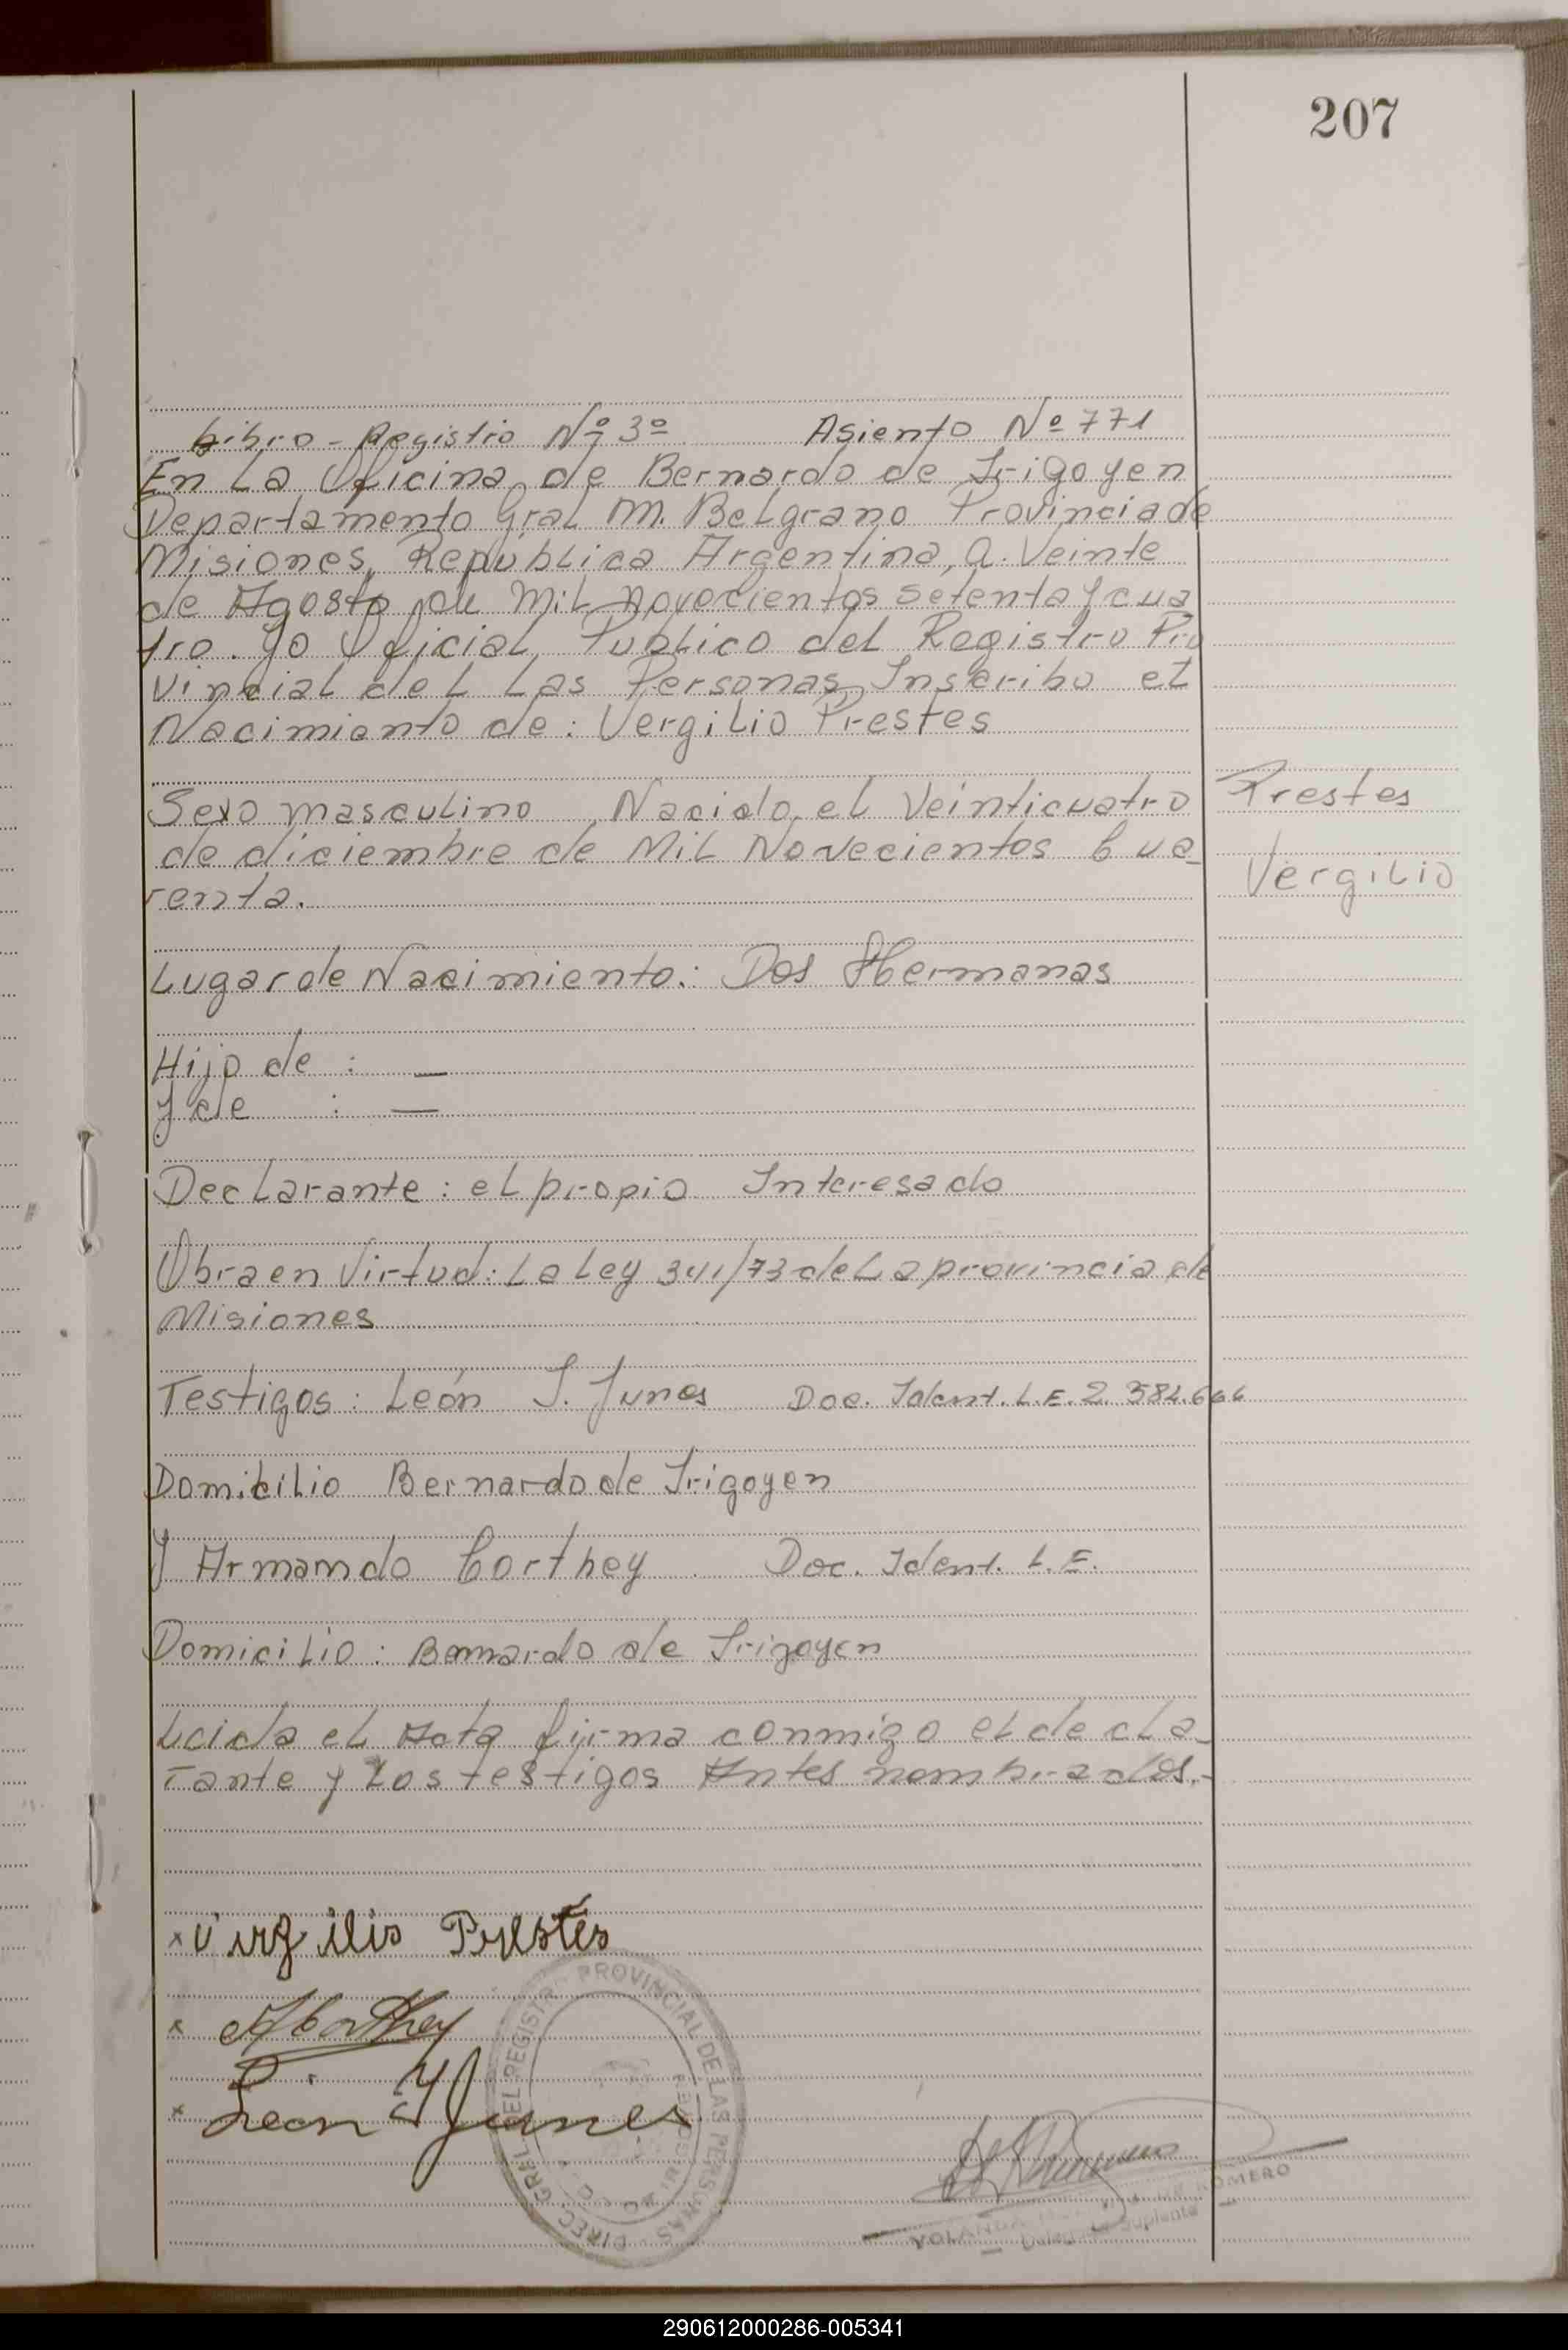 207
Libro - Registro Nº 3º Asiento Nº 771
En La Oficina de Bernardo de Irigoyen
Departamento Gral M. Belgrano Provincia de
Misiones, Republica Argentina, a. Veinte
de Agosto de Mil Novecientos Setenta y cua
tro. Yo Oficial Publico del Registro Pro
vincial deL Las Personas, Inscribo el
Nacimiento de: Vergilio Prestes
Sexo masculino Nacido el Veinticuatro
de diciembre de Mil Novecientos Cua_
renta.
Prestes
Vergilio
Lugar de Nacimiento: Dos Hermanas
Hijo de : —
Y de : —
Declarante: el propio Interesado
Obra en Virtud: La Ley 341/73 de La provincia de
Misiones
Testigos: León I. Junes Doc. Ident. L.E. 2.384.666
Domicilio Bernardo de Irigoyen
Y Armando Corthey Doc. Ident. L.E.
Domicilio: Bernardo de Irigoyen
Leida el Acta firma conmigo el decla_
rante y Los testigos Antes nombrados.-
x Virgilio Prestes
x ACorthey
x León I Junes
DIREC. GREL. DEL REGISTRO PROVINCIAL DE LAS PERSONAS
YOLANDA DE ROMERO
Delegada Suplente
290612000286-005341